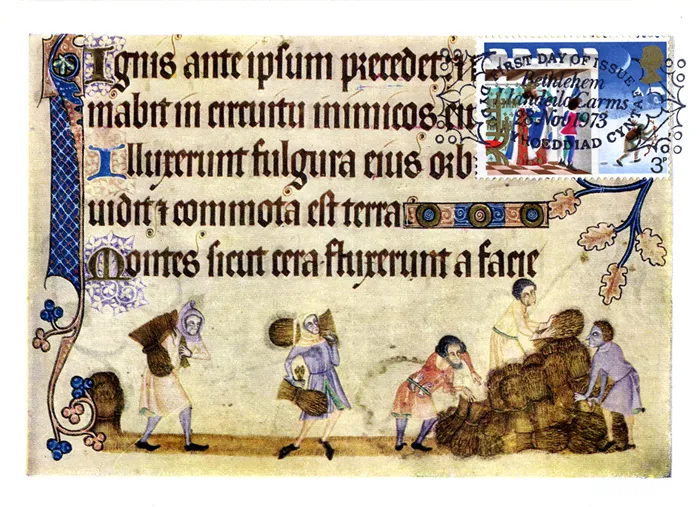 Ignis ante ipsum precedet: ⁊
mabit in circuitu inimicos eiu
Illuxerunt fulgura eius orb
uidit ⁊ commota est terra
Montes sicut cera·fluxerunt a facie
FIRST DAY OF ISSUE
Bethlehem
Llandeilo Carms
28 Nov 1973
CYHOEDDIAD CYNTAF
3P